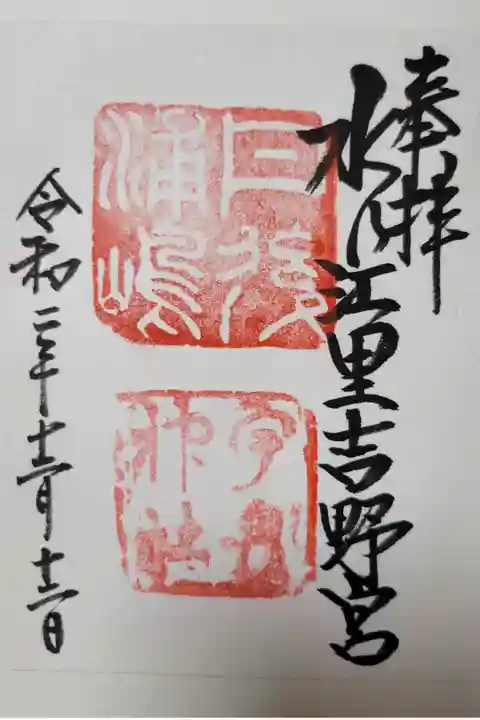 奉拝
水乃江里吉野宮
丹後
浦嶋
宇良
神社
令和二年十二月十二日